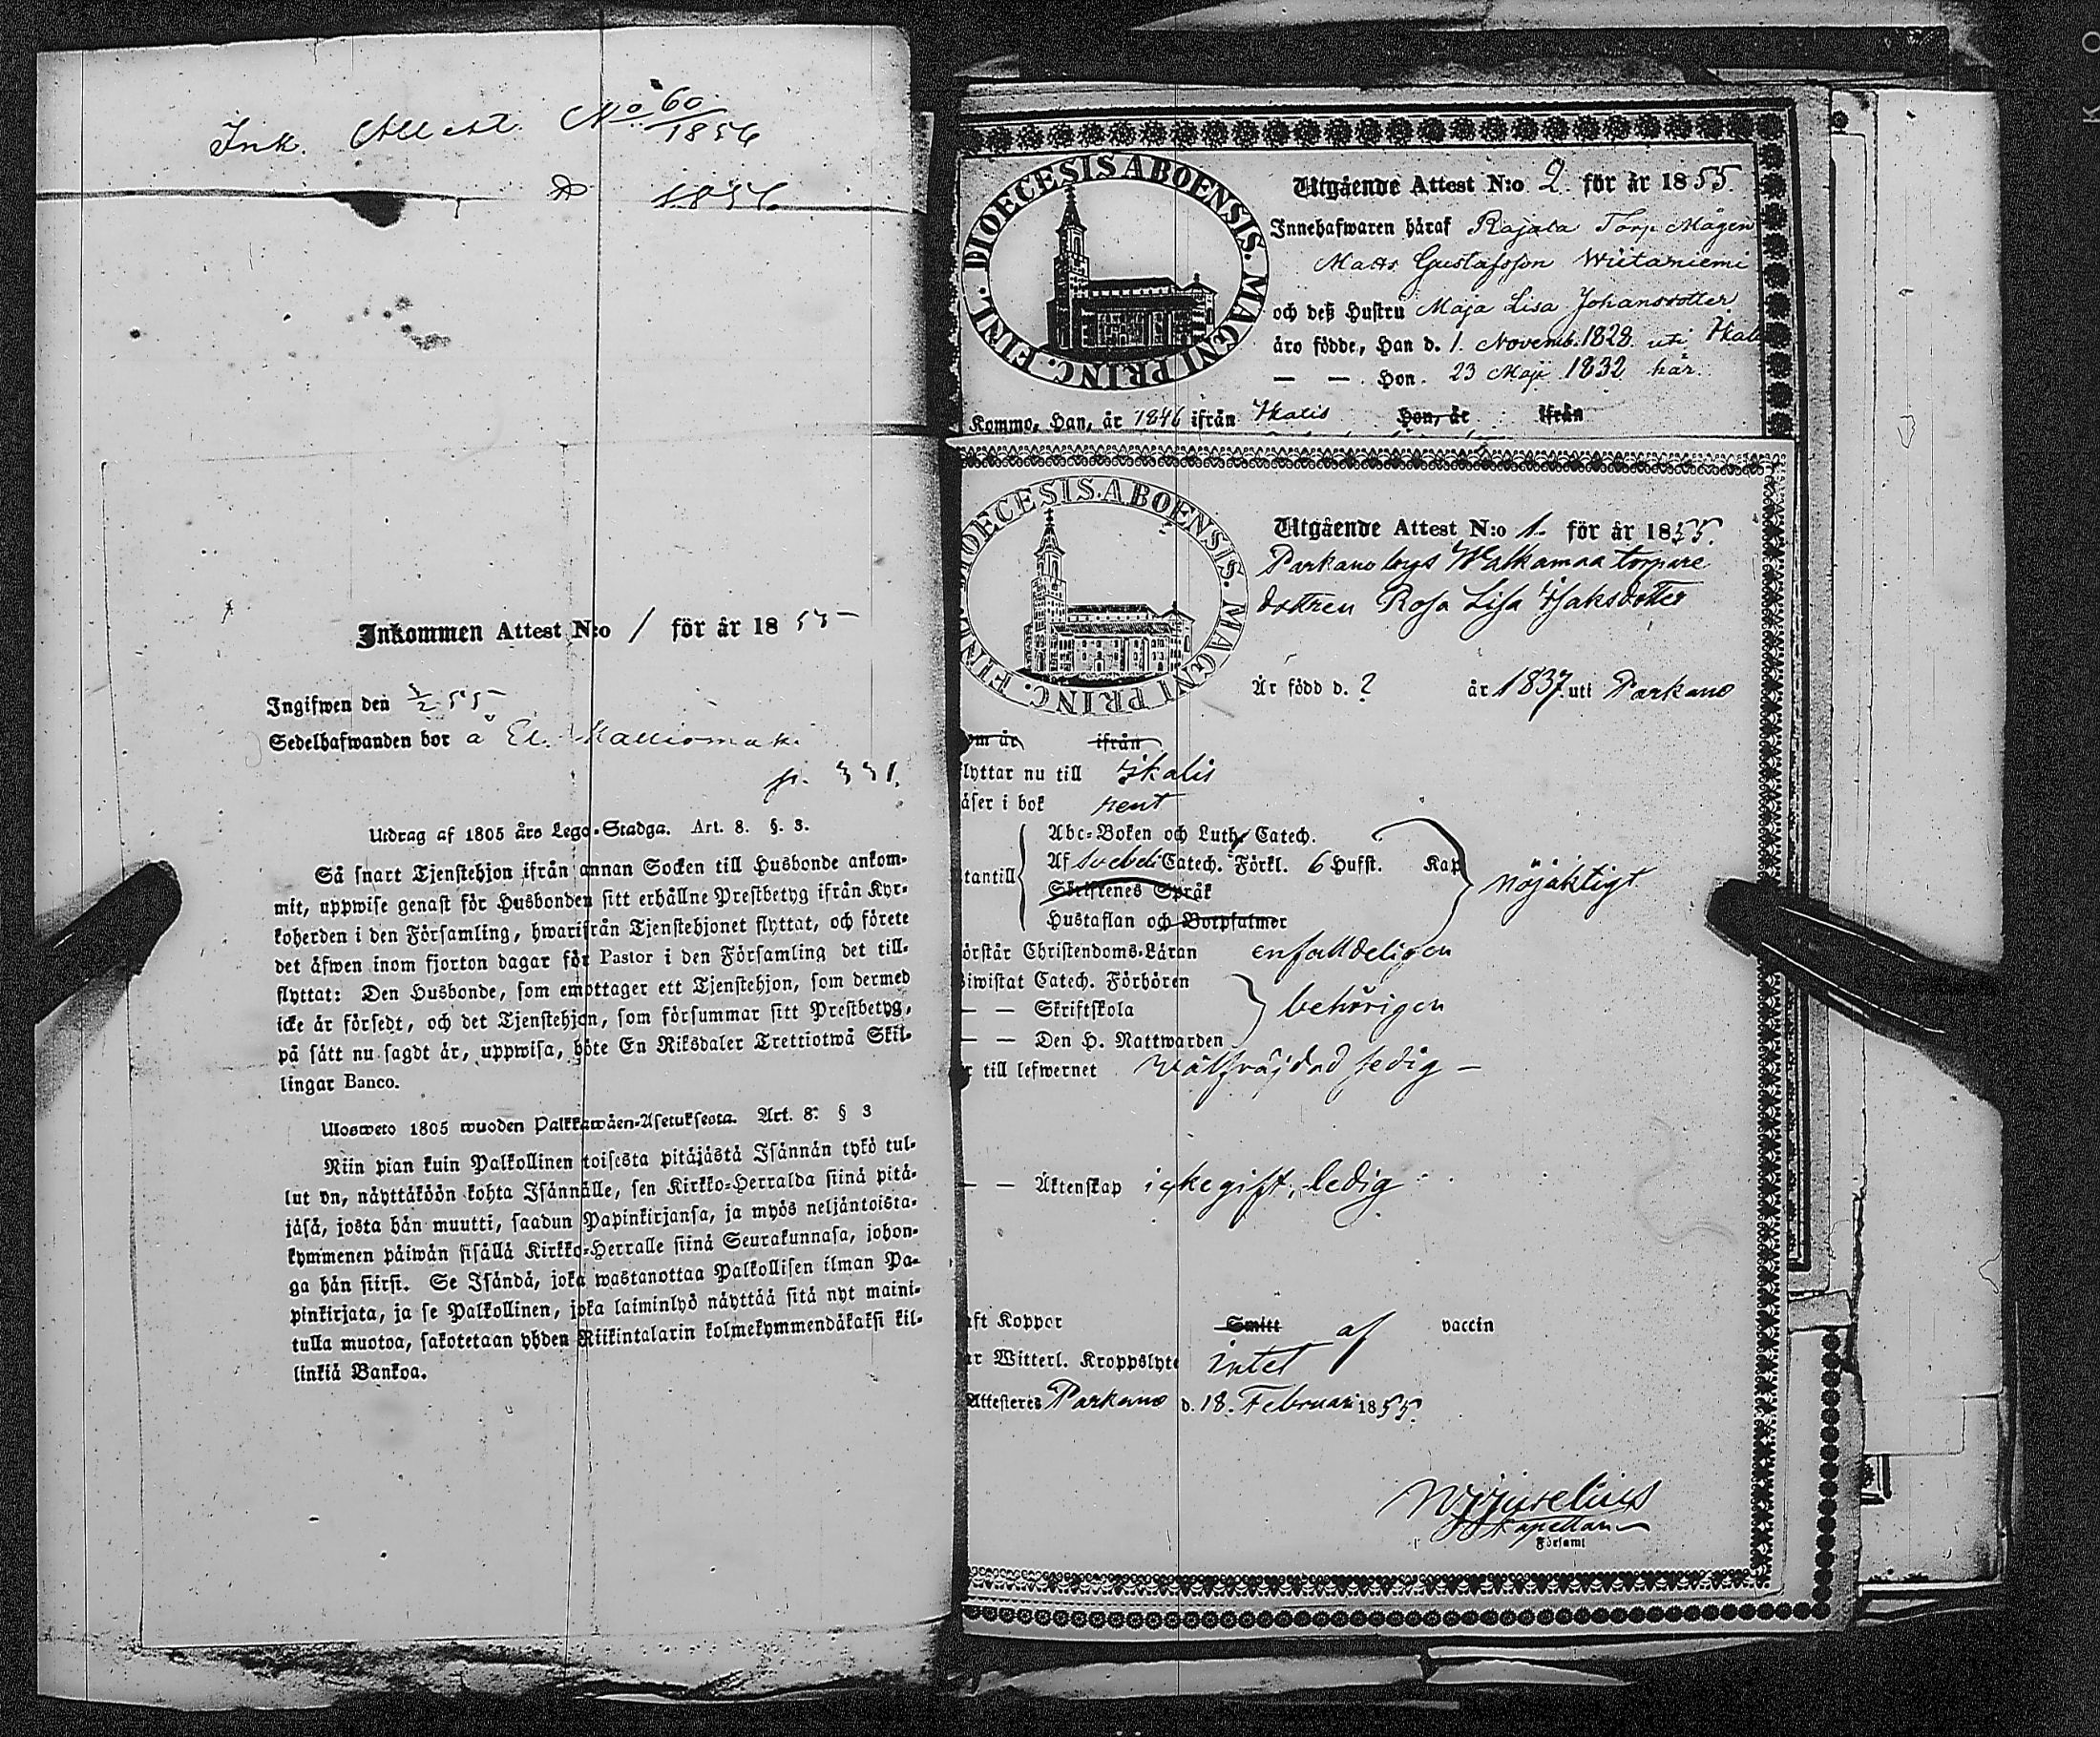 Ink. Attest. No 60/1856
1856
Inkommen Attest N:o 1 för år 1855
Ingifwen den 3/2 55
Sedelhafwanden bor å El. Kalliomäki
p. 331.
Utdrag af 1805 års Lego-Stadga. Art. 8. §. 3.
Så snart Tjenstehjon ifrån annan Socken till Husbonde ankom-
mit, uppwise genast för Husbonden sitt erhållne Prestbetyg ifrån Kyr-
koherden i den Församling, hwarifrån Tjenstehjonet flyttat, och förete
det äfwen inom fjorton dagar för Pastor i den Församling det till-
flyttat: Den Husbonde, som emottager ett Tjenstehjon, som dermed
icke är försedt, och det Tjenstehjon, som försummar sitt Prestbetyg,
på sätt nu sagdt är, uppwisa, böte En Riksdaler Trettiotwå Skil-
lingar Banco.
Ulosweto 1805 wuoden Palkkawäen-Asetuksesta. Art. 8. § 3
Niin pian kuin Palkollinen toisesta pitäjästä Isännän tykö tul-
lut on, näyttäköön kohta Isännälle, sen Kirkko-Herralda siinä pitä-
jäsä, josta hän muutti, saadun Papinkirjansa, ja myös neljäntoista-
kymmenen päiwän sisällä Kirkko-Herralle siinä Seurakunnasa, johon-
ga hän siirsi. Se Isändä, joka wastanottaa Palkollisen ilman Pa-
pinkirjata, ja se Palkollinen, joka laiminlyö näyttää sitä nyt maini-
tulla muotoa, sakotetaan yhden Riikintalarin kolmekymmendäkaksi kil-
linkiä Bankoa.
DIOECESIS ABOENSIS. MAGNI PRINC. FINL.
Utgående Attest N:o 2. för år 1855.
Innehafwaren häraf Rajala Torp Mågen
Matts Gustafsson Wiitaniemi
och deß Hustru Maja Lisa Johansdotter
äro födde, Han d. 1. Novemb. 1828. uti Ikal
— — . Hon. 23 Maji 1832 här.
Kommo, Han, år 1846 ifrån Ikalis Hon, år ifrån
DIOECESIS. ABOENSIS. MAGNI PRINC. FINL.
Utgående Attest N:o 1. för år 1855.
Parkano bys Walkamaa torpare
dottren Rosa Lisa Isaksdotter
Är född d. ? år 1837. uti Parkano
om år ifrån
lyttar nu till Ikalis
äser i bok rent
Abc-Boken och Luth. Catech.
Af Svebeli Catech. Förkl. 6 Hufst. Kap
tantill nöjaktigt.
Skriftenes Språk
Hustaflan och Botpsalmer
örstår Christendoms-Läran enfalldeligen
iwistat Catech. Förhören
— — Skriftskola behörigen
— — Den H. Nattwarden
r till lefwernet wälfräjdad sedig —
— — Äktenskap icke gift, ledig
aft Koppor Smitt af vaccin
ar Witterl. Kroppslyte intet
Attesteres Parkano d. 18. Februari 1855.
Kapellan
Församl